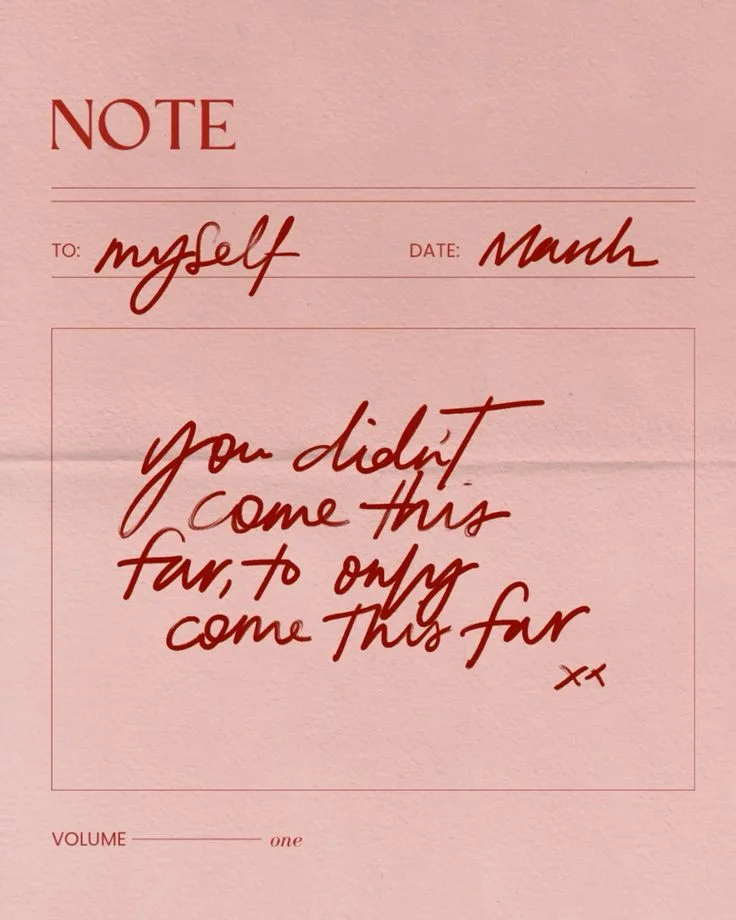 NOTE
TO: myself DATE: March
you didn't
come this
far, to only
come this far
xx
VOLUME one